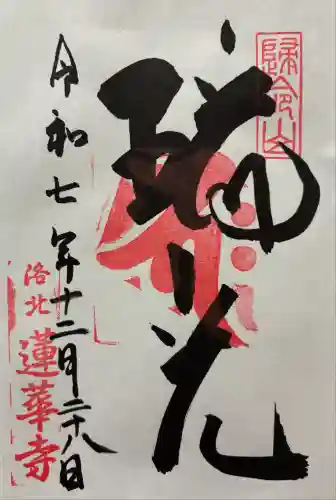 歸命山
瑞光
令和七年十二月二十八日
洛北
蓮華寺